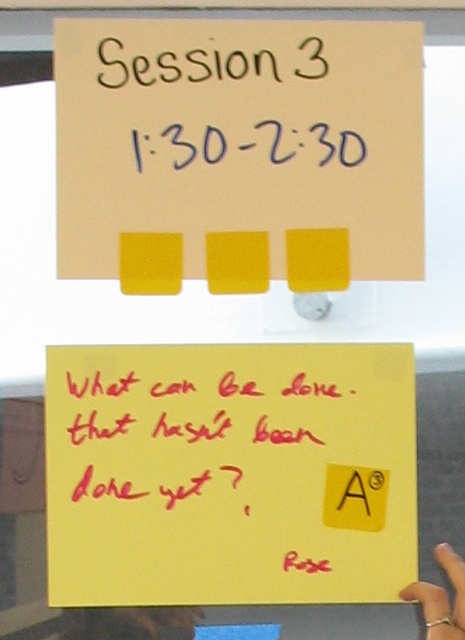 Session 3
1:30-2:30
What can be done.
that hasn't been
done yet?
A③
Rose